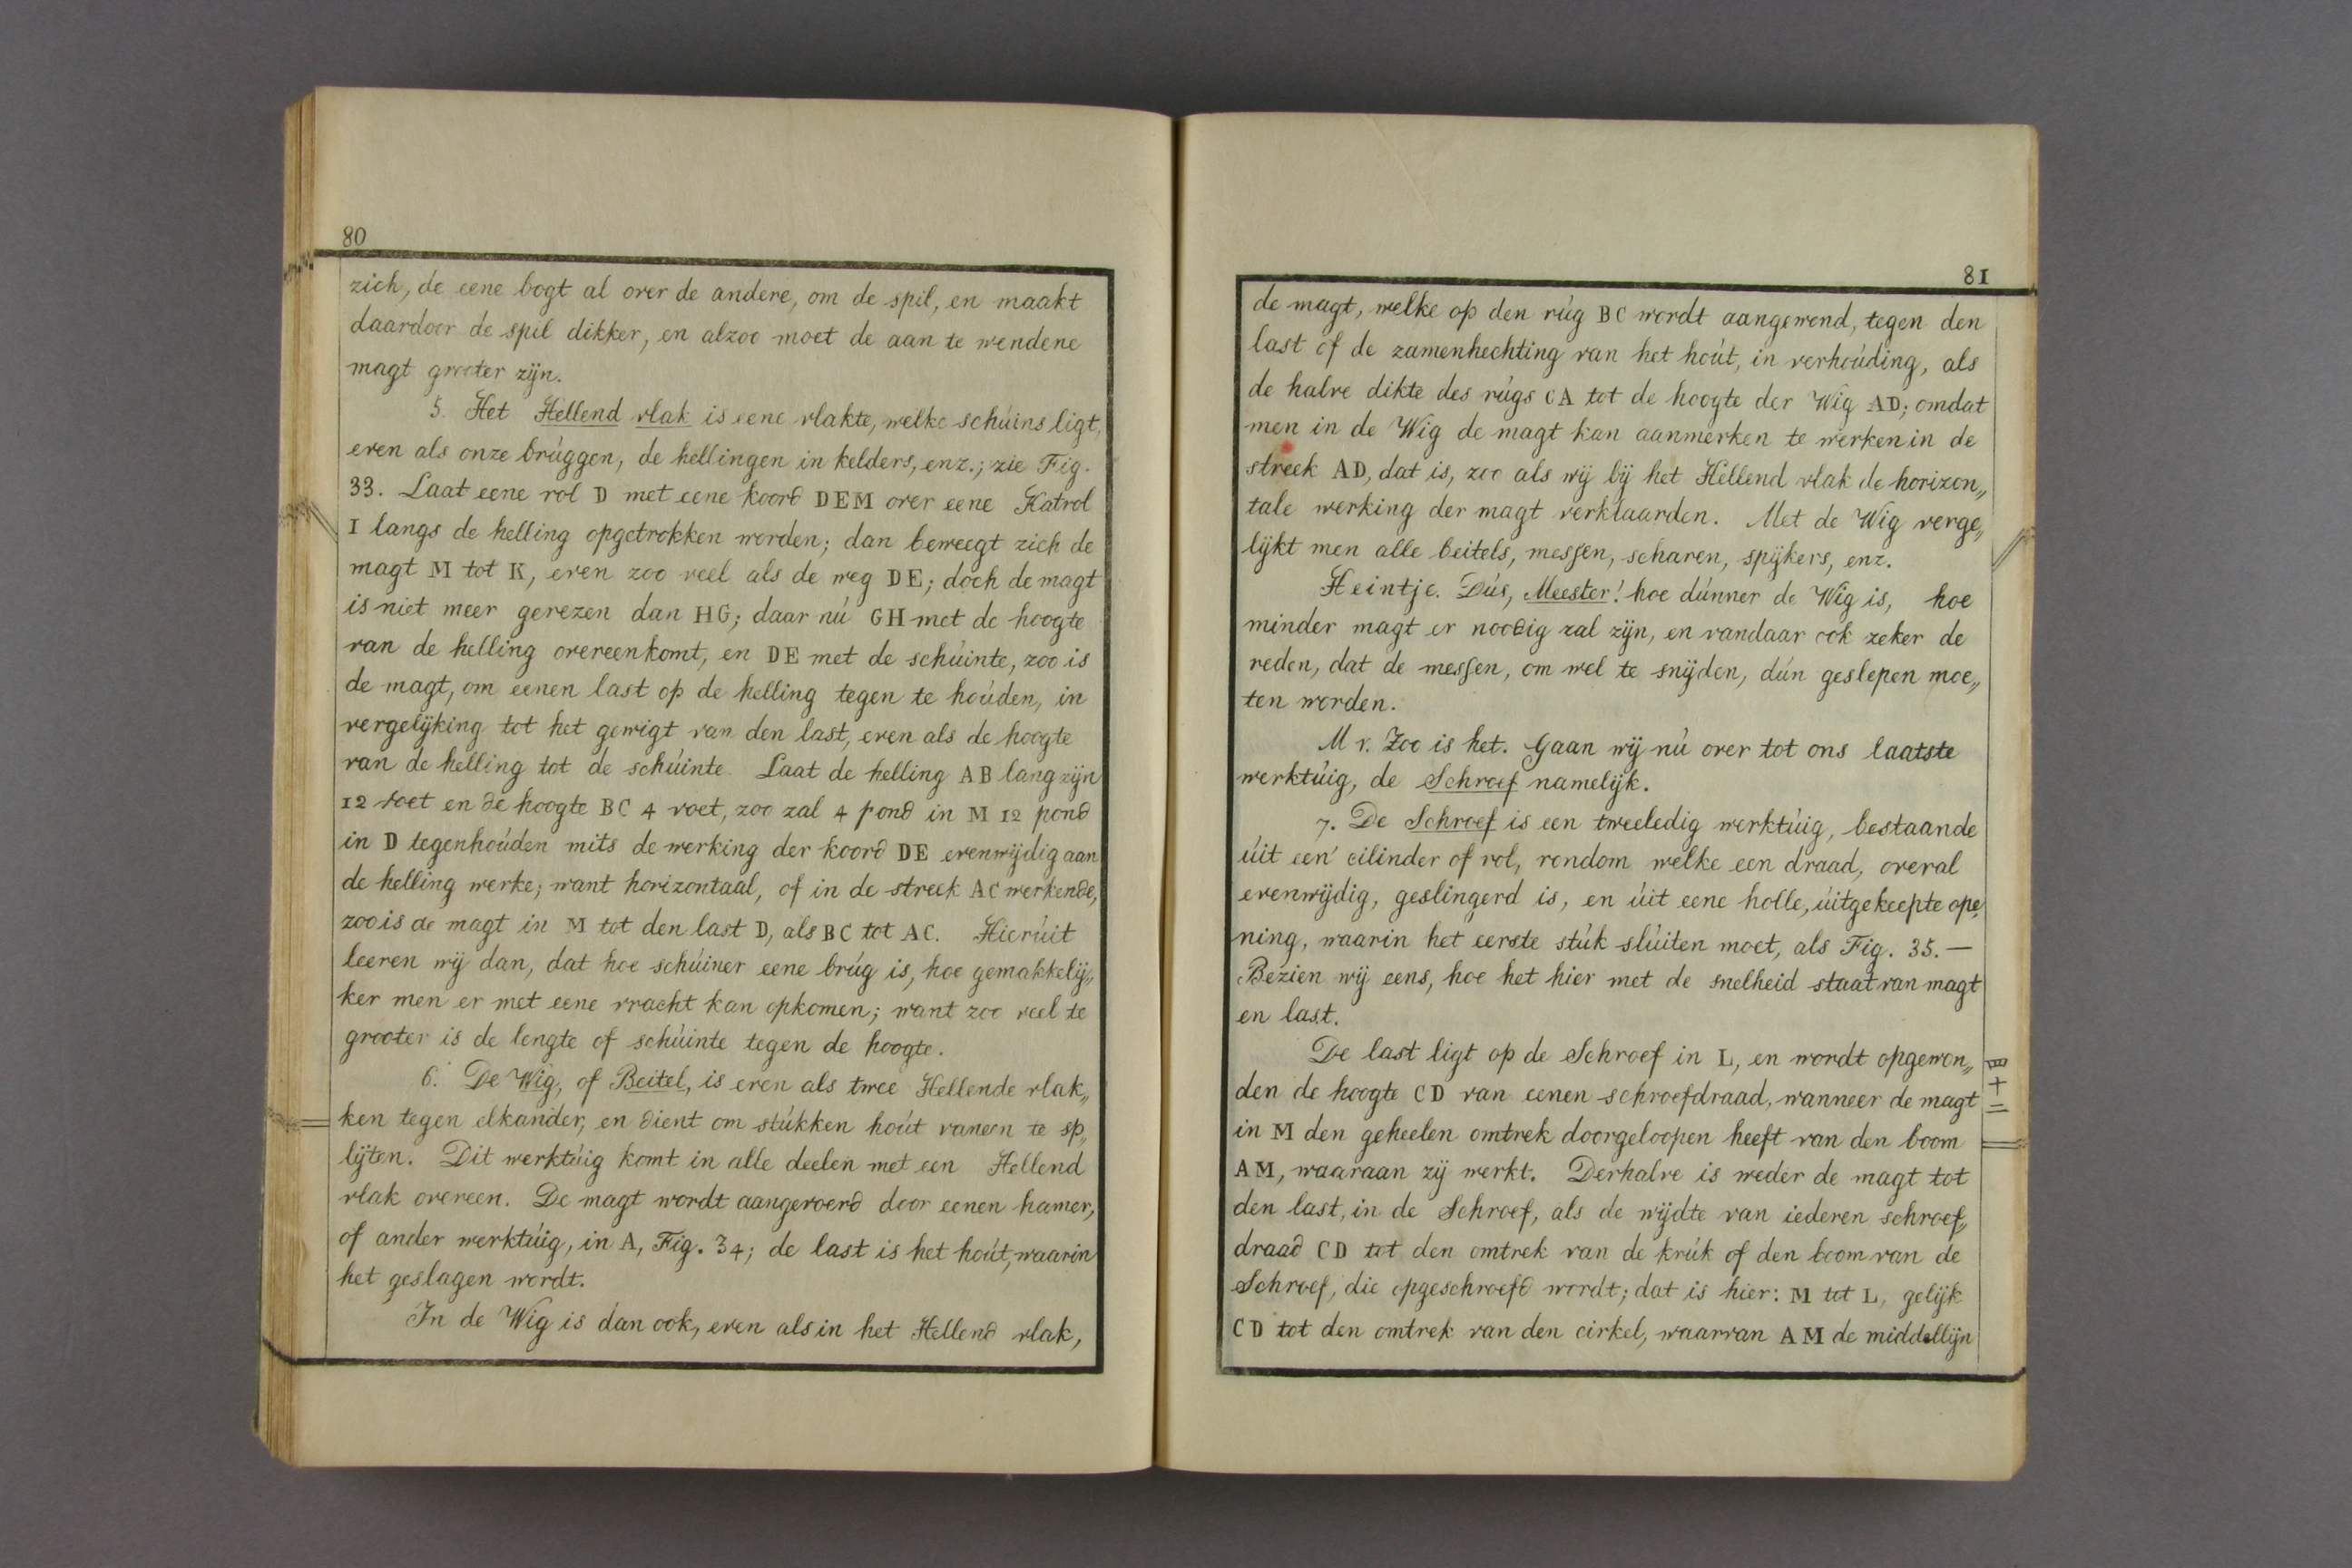 80
zich, de eene bogt al over de andere, om de spil, en maakt
daardoor de spil dikker, en alzoo moet de aan te wendene
magt grooter zijn.
5. Het Hellend vlak is eene vlakte, welke schúins ligt,
even als onze brúggen, de hellingen in kelders, enz.; zie Fig.
33. Laat eene rol D met eene koord DEM over eene Katrol
I langs de helling opgetrokken worden; dan beweegt zich de
magt M tot K, even zoo veel als de weg DE; doch de magt
is niet meer gerezen dan HG; daar nú GH met de hoogte
van de helling overeenkomt, en DE met de schúinte, zoo is
de magt, om eenen last op de helling tegen te hoúden, in
vergelijking tot het gewigt van den last, even als de hoogte
van de helling tot de schúinte. Laat de helling AB lang zijn
12 voet en de hoogte BC 4 voet, zoo zal 4 pond in M 12 pond
in D tegenhoúden mits de werking der koord DE evenwijdig aan
de helling werke; want horizontaal, of in de streek AC werkende,
zoo is de magt in M tot den last D, als BC tot AC. Hierúit
leeren wij dan, dat hoe schúiner eene brúg is, hoe gemakkelij„
ker men er met eene vracht kan opkomen; want zoo veel te
grooter is de lengte of schúinte tegen de hoogte.
6. De Wig, of Beitel, is even als twee Hellende vlak„
ken tegen elkander, en dient om stúkken hoút vaneen te sp„
lijten. Dit werktúig komt in alle deelen met een Hellend
vlak overeen. De magt wordt aangevoerd door eenen hamer,
of ander werktúig, in A, Fig. 34; de last is het hoút, waarin
het geslagen wordt.
In de Wig is dan ook, even als in het Hellend vlak,
81
de magt, welke op den rúg BC wordt aangewend, tegen den
last of de zamenhechting van het hoút, in verhoúding, als
de halve dikte des rúgs CA tot de hoogte der Wig AD; omdat
men in de Wig de magt kan aanmerken te werken in de
streek AD, dat is, zoo als wij bij het Hellend vlak de horizon„
tale werking der magt verklaarden. Met de Wig verge„
lijkt men alle beitels, messen, scharen, spijkers, enz.
Heintje. Dús, Meester! hoe dúnner de Wig is, hoe
minder magt er noodig zal zijn, en vandaar ook zeker de
reden, dat de messen, om wel te snijden, dún geslepen moe„
ten worden.
Mr. Zoo is het. Gaan wij nú over tot ons laatste
werktúig, de Schroef namelijk.
7. De Schroef is een tweeledig werktúig, bestaande
úit een' cilinder of rol, rondom welke een draad, overal
evenwijdig, geslingerd is, en úit eene holle, úitgekeepte ope„
ning, waarin het eerste stúk slúiten moet, als Fig. 35. —
Bezien wij eens, hoe het hier met de snelheid staat van magt
en last.
De last ligt op de Schroef in L, en wordt opgewon„
den de hoogte CD van eenen schroefdraad, wanneer de magt
in M den geheelen omtrek doorgeloopen heeft van den boom
AM, waaraan zij werkt. Derhalve is weder de magt tot
den last, in de Schroef, als de wijdte van iederen schroef„
draad CD tot den omtrek van de krúk of den boom van de
Schroef, die opgeschroefd wordt; dat is hier: M tot L, gelijk
CD tot den omtrek van den cirkel, waarvan AM de middellijn